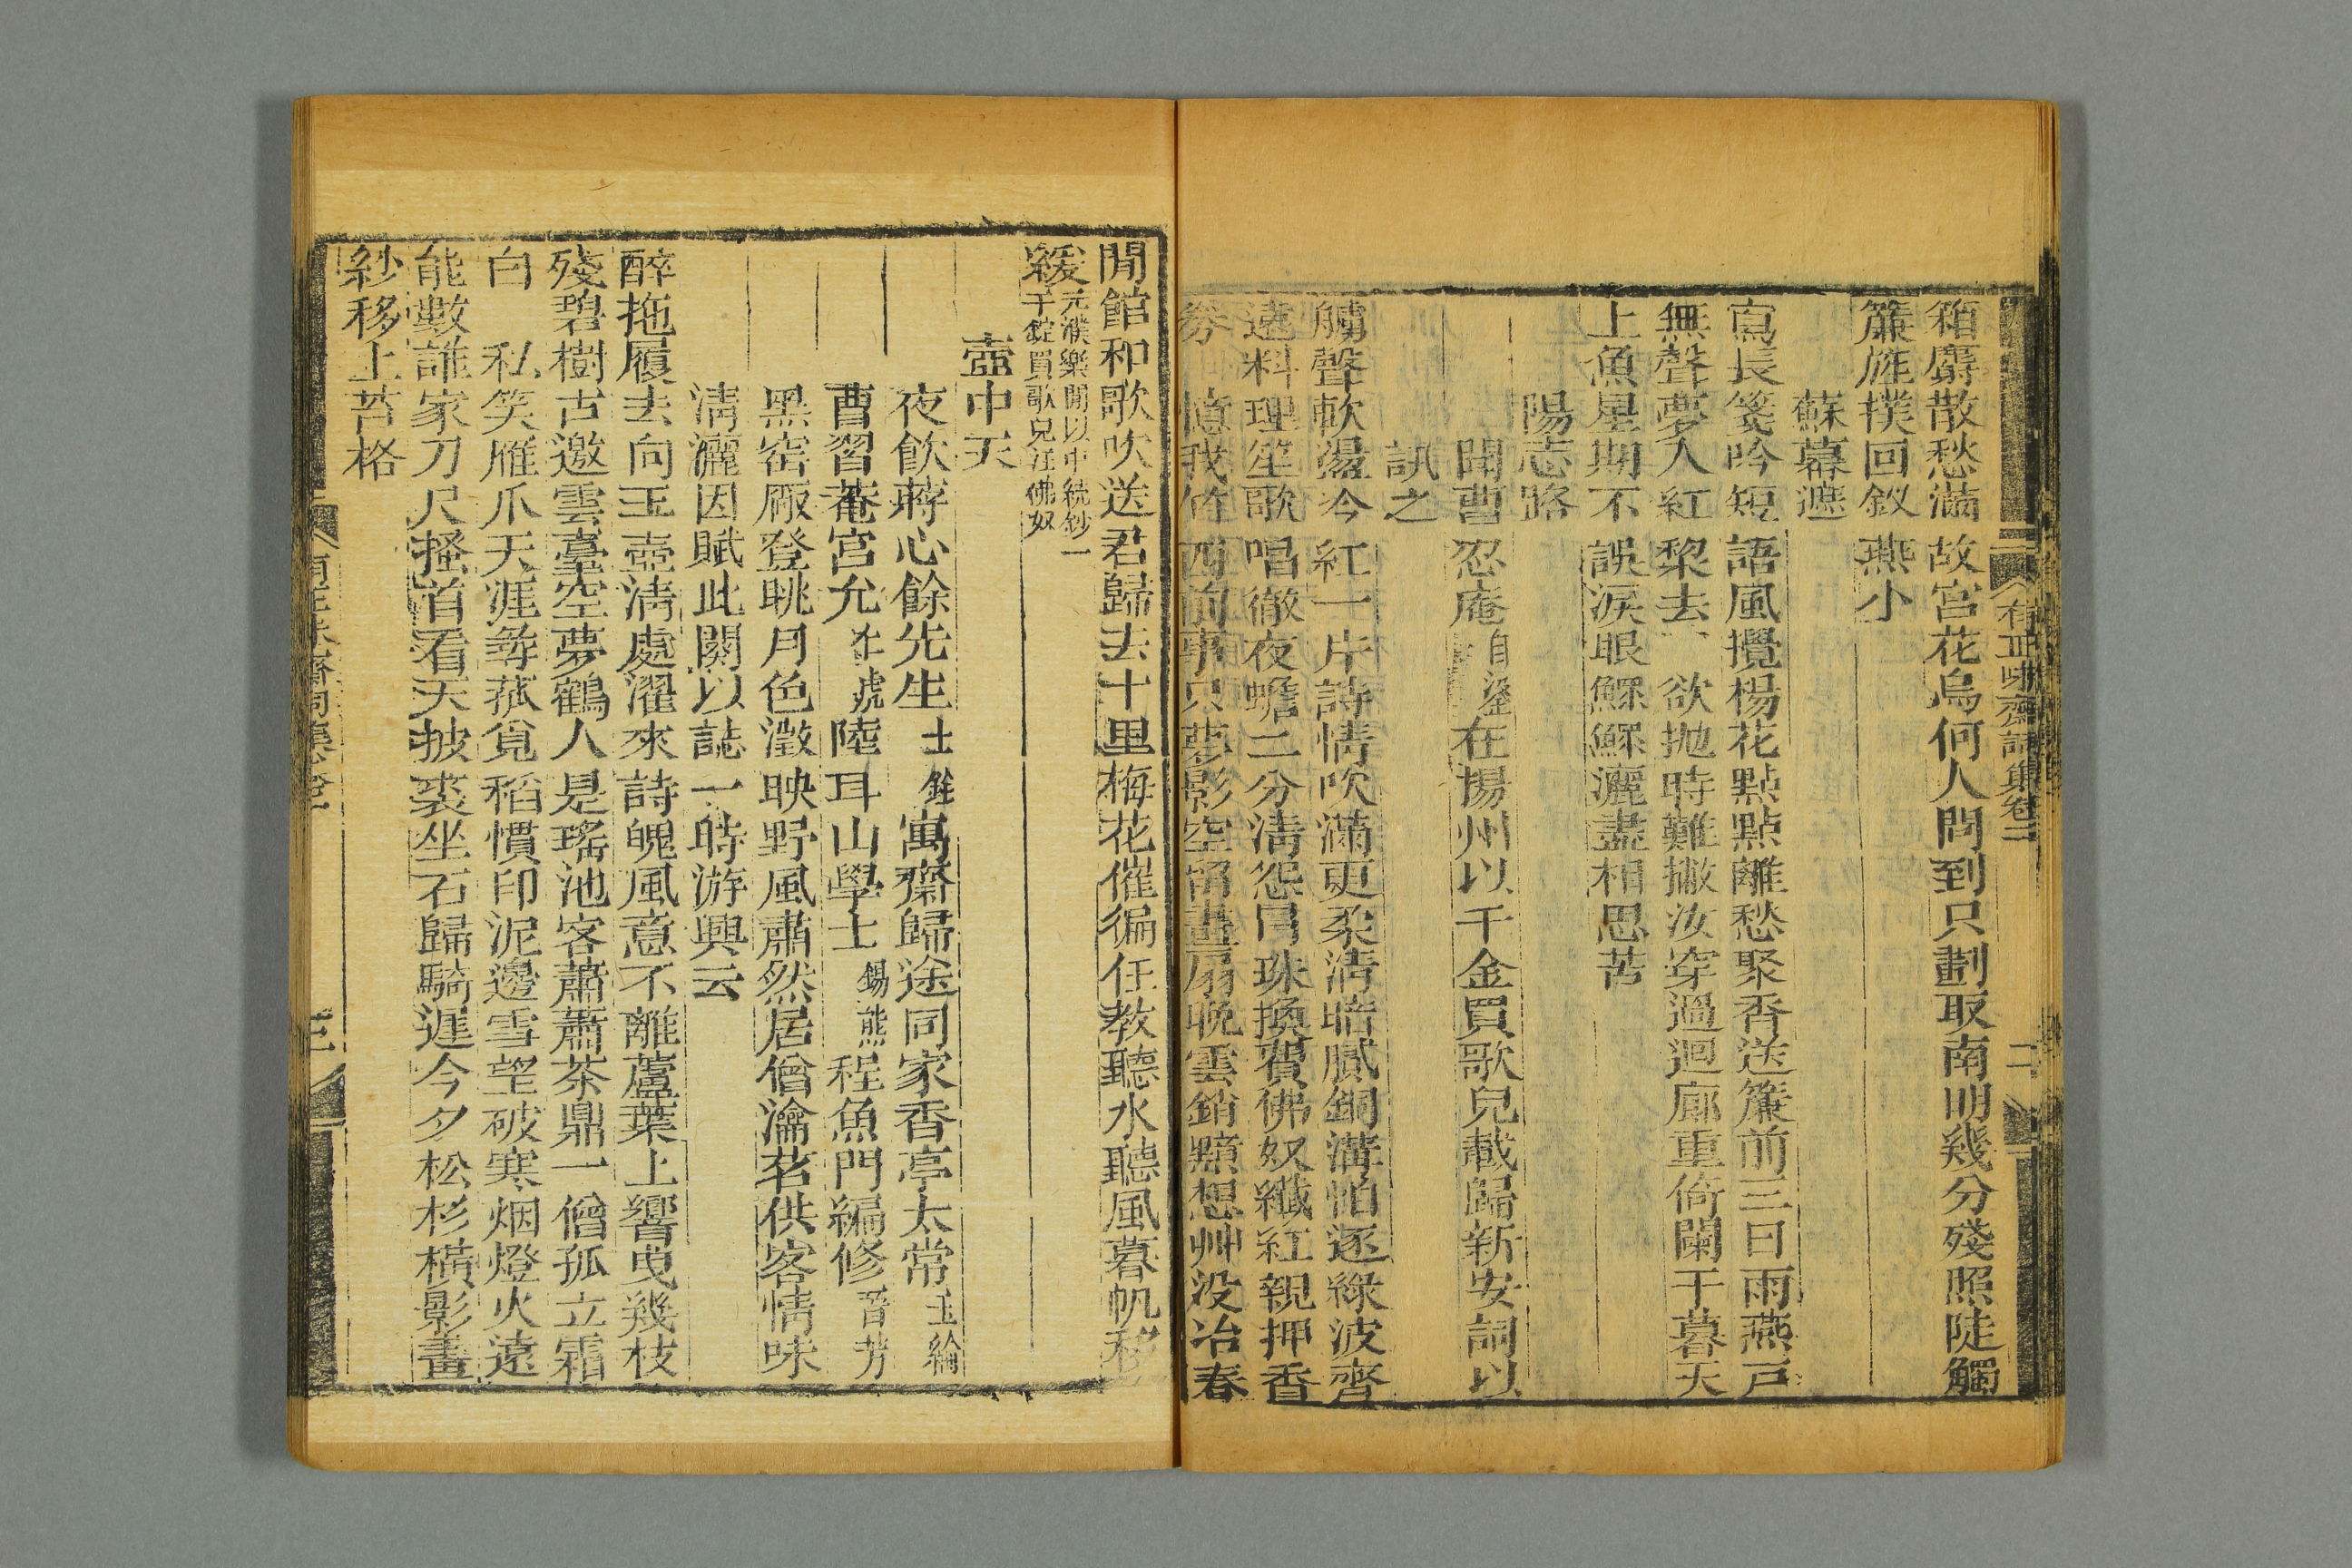 箱麝散愁滿故宮花鳥何人問到只劃取南明幾分殘照陡觸
簾旌撲回釵燕小
蘇幕遮
寫長箋吟短語風攪楊花點點離愁聚香送簾前三日雨燕戸
無聲夢人紅棃去 欲拋時難撇汝穿過迴廊重倚闌干暮天
上魚星期不誤淚眼鰥鰥灑盡相思苦
陽志路
聞曹忍庵自鎏在揚州以千金買歌兒載歸新安詞以
訊之
艣聲軟盪冷紅一片詩情吹滿更柔淸暗膩銅溝怕逐綠波齊
遠料理笙歌唱徹夜蟾二分淸怨冒珠換費佛奴纖紅親押香
券 憶我竹西前事只夢影空留畫扇晚雲銷黯想艸没冶春
有正味齋詞集卷二
二
閒館和歌吹送君歸去十里梅花催徧任教聽水聽風暮帆移
緩元濮樂閒以中統鈔一千錠買歌兒汪佛奴
壺中天
夜飲蔣心餘先生士銓寓齋歸途同家香亭太常玉綸
曹習菴宮允仁虎陸耳山學士錫熊程魚門編修晉芳
黑窑厰登眺月色澂映野風肅然居僧瀹茗供客情味
淸灑因賦此闋以誌一時游興云
醉拖屐去向玉壺淸處濯來詩魄風意不離蘆葉上響曳幾枝
殘碧樹古邀雲臺空夢鶴人是瑤池客蕭蕭茶鼎一僧孤立霜
白 私笑雁爪天涯彝菰覓稻慣印泥邊雪望破寒烟燈火遠
能數誰家刀尺搔首看天披裘坐石歸騎遲今夕松杉橫影畫
紗移上苔格
有正味齋詞集卷二
三